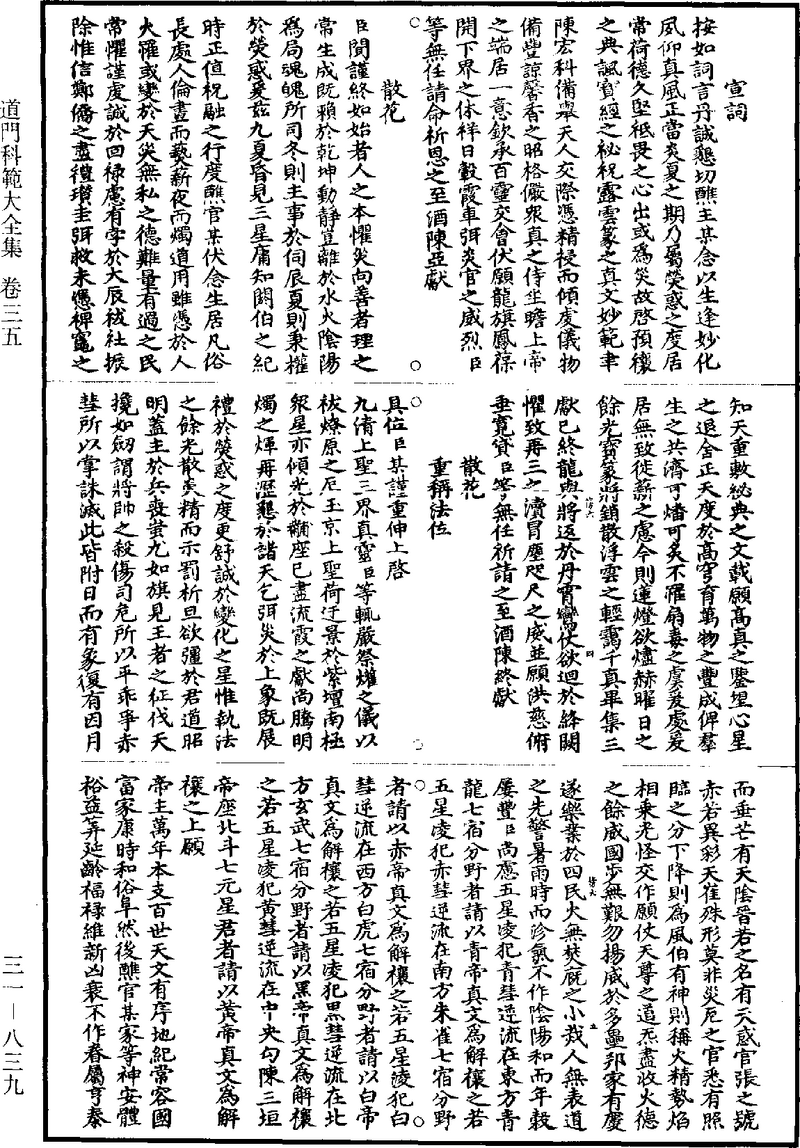 宣詞
按如詞言丹誠懇切醮主某念以生逢妙化
夙仰真風正當炎夏之期乃屬熒惑之度居
常荷德久堅祗畏之心出或為災故啓預禳
之典諷寶經之祕祝露雲篆之真文妙範聿
陳宏科備舉天人交際憑精祲而傾虔儀物
備豐諒馨香之昭格儼眾真之侍坐瞻上帝
之端居一意欽承百靈交會伏願龍旗鳳葆
開下界之休祥日轂霞車弭炎官之威烈臣
等無任請命祈恩之至酒陳亞獻
散花
臣聞謹終如始者人之本懼災向善者理之
常生成既賴於乾坤動靜豈離於水火陰陽
為局魂魄所司冬則主事於伺辰夏則秉權
於熒惑爰茲九夏昏見三星庸知閼伯之紀
時正值祝融之行度醮官某伏念生居凡俗
長處人倫晝而爇薪夜而燭道用雖憑於人
火罹或變於天災無私之德難量有過之民
常懼謹虔誠於回祿慮有孛於大辰祓社振
除惟信鄭僑之盡禮瓚圭弭救未憑裨竈之
知天重敷祕典之文載願高真之鑒埋心星
之退舍正天度於高穹育萬物之豐成俾羣
生之共濟可燔可炙不罹扇毒之虞爰處爰
居無致徙薪之慮今則蓮燈欲燼赫曜日之
餘光寶篆將銷散浮雲之輕靄千真畢集三
獻已終龍輿將返於丹霄鸞仗欲迴於絳闕
懼致再三之瀆冒塵咫尺之威並願洪慈俯
垂寬貸臣等無任祈請之至酒陳終獻
散花
重稱法位
具位臣某謹重伸上啓
九清上聖三界真靈臣等輒嚴祭燿之儀以
祓燎原之厄玉京上聖荷迂景於紫壇南極
眾星亦傾光於黼座已盡流霞之獻尚騰明
燭之煇再瀝懇於諸天乞弭災於上象既展
禮於熒惑之度更舒誠於變化之星惟執法
之餘光散炎精而示罰析旦欲彊於君道昭
明蓋主於兵喪蚩尤如旗見王者之征伐天
攙如劒謂將帥之殺傷司危所以平乖爭赤
彗所以掌誅滅此皆附日而有象復有因月
而垂芒有天陰晉若之名有天惑官張之號
赤若異彩天雀殊形莫非災厄之官悉有照
臨之分下降則為風伯有神則稱火精勢焰
相乗光怪交作願仗天尊之道炁盡收火德
之餘威國步無艱勿揚威於多壘邦家有慶
遂樂業於四民火無焚廐之小烖人無表道
之先警暑雨時而沴氣不作陰陽和而年穀
屢豐臣尚慮五星凌犯青彗逆流在東方青
龍七宿分野者請以青帝真文為解禳之若
五星凌犯赤彗逆流在南方朱雀七宿分野
者請以赤帝真文為解禳之若五星凌犯白
彗逆流在西方白虎七宿分野者請以白帝
真文為解禳之若五星凌犯黑彗逆流在北
方玄武七宿分野者請以黑帝真文為解禳
之若五星凌犯黃彗逆流在中央勾陳三垣
帝座北斗七元星君者請以黃帝真文為解
禳之上願
帝主萬年本支百世天文有序地紀常容國
富家康時和俗阜然後醮官某家等神安體
裕益筭延齡福祿維新凶衰不作眷屬亨泰
道門科範大全集 卷三五
三一—八三九